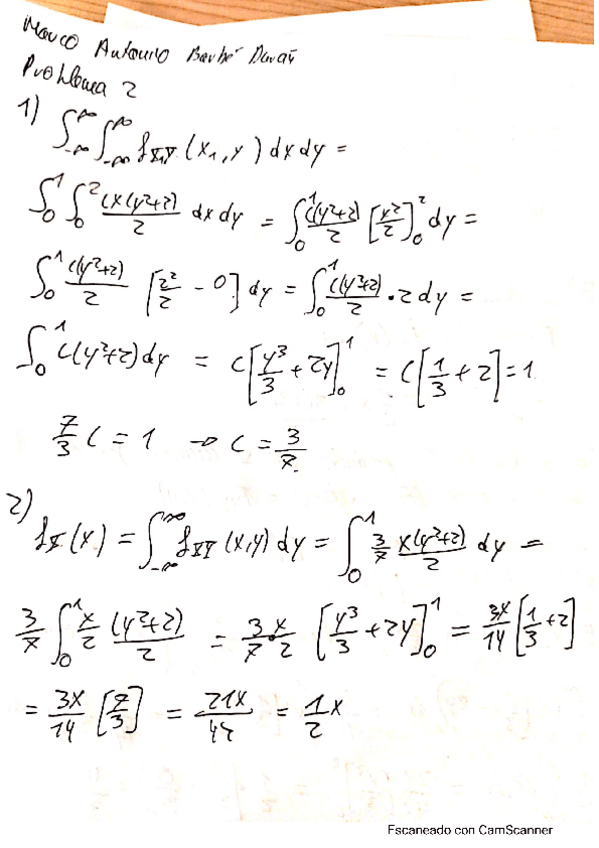 Marco Antonio
Problema 2
1) ∫_{-∞}^{∞} ∫_{-∞}^{∞} f_{XY} (x, y) dx dy =
∫_0^1 ∫_0^2 \frac{Cx(y²+2)}{2} dx dy = ∫_0^1 \frac{C(y²+2)}{2} [\frac{x²}{2}]_0^2 dy =
∫_0^1 \frac{C(y²+2)}{2} [\frac{2²}{2} - 0] dy = ∫_0^1 \frac{C(y²+2)}{2} · 2 dy =
∫_0^1 C(y²+2) dy = C[\frac{y³}{3} + 2y]_0^1 = C[\frac{1}{3} + 2] = 1
\frac{7}{3} C = 1 → C = \frac{3}{7}
2) f_X(x) = ∫_{-∞}^{∞} f_{XY} (x,y) dy = ∫_0^1 \frac{3}{7} \frac{x(y²+2)}{2} dy =
\frac{3}{7} ∫_0^1 \frac{x}{2} \frac{(y²+2)}{2} = \frac{3}{7} · \frac{x}{2} [\frac{y³}{3} + 2y]_0^1 = \frac{3x}{14} [\frac{1}{3} + 2]
= \frac{3x}{14} [\frac{7}{3}] = \frac{21x}{42} = \frac{1}{2} x
Escaneado con CamScanner